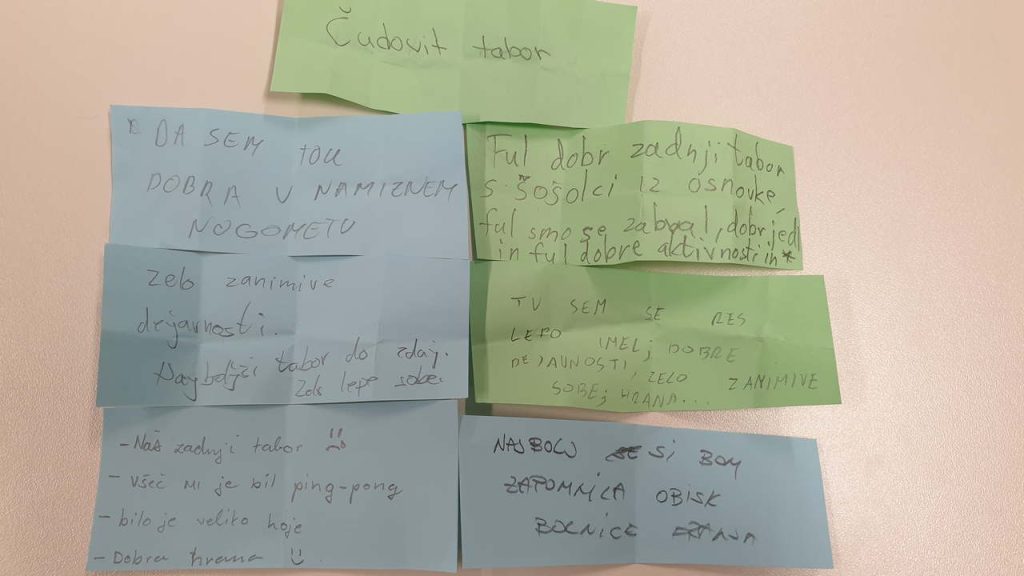 Čudovit tabor
* DA SEM TOU
DOBRA V NAMIZNEM
NOGOMETU
Ful dobr zadnji tabor
s šošolci iz osnovke,
ful smo se zabval, dobr jedl
in ful dobre aktivnosti in *
zelo zanimive
dejavnosti.
Najboljši tabor do zdaj.
Zelo lepe sobe.
TU SEM SE RES
LEPO IMEL; DOBRE
DEJAVNOSTI, ZELO ZANIMIVE
SOBE; HRANA...
- Naš zadnji tabor
- Všeč mi je bil ping-pong
- bilo je veliko hoje
- Dobra hrana
NAJBOLJ SI BOM
ZAPOMNILA OBISK
BOLNICE FRANJA